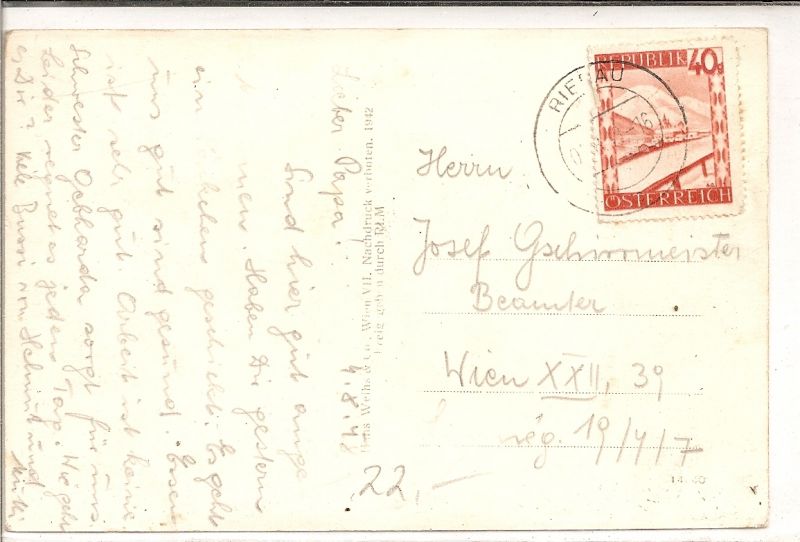 Lieber Papa!
4.8.48
Sind hier gut ange
men. Haben Dir gestern
ein geschickt. Es geht
uns gut sind gesund. Essen
ist sehr gut Arbeit ist keine
Schwester Gebharda sorgt für uns.
Leider regnet es jeden Tag. Wie geht
es Dir? Viele Bussi von Helmut und
Hans Weihs & Co., Wien VII. Nachdruck verboten. 1942
Freigegeben durch RLM
REPUBLIK 40g
ÖSTERREICH
RIEDAU
Herrn
Josef Gschwormeister
Beamter
Wien XXII, 39
reg. 19/4/7
22,-